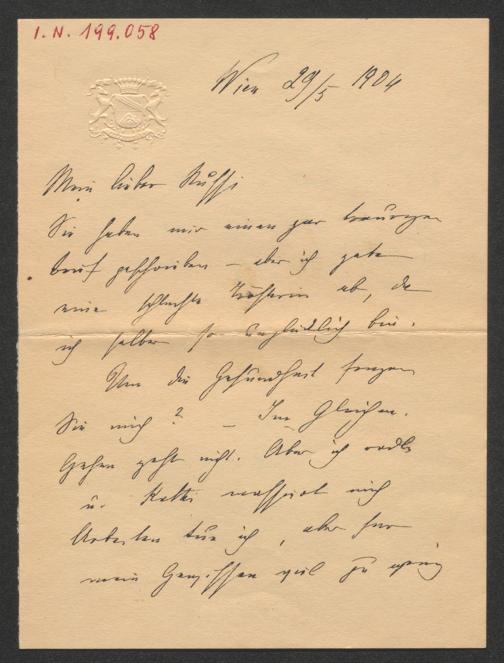 I. N. 199.058
Wien 29/5 1904
Mein lieber
Sie haben mir einen gar traurigen
brief geschrieben – aber ich gebe
eine schlechte Trösterin ab, da
ich selber so unglücklich bin.
Um die Gesundheit fragen
Sie mich? – Im Gleichen.
Gehen geht nicht. Aber ich radle
u. Kathi massirt mich
Arbeiten tue ich, aber für
mein Gewissen viel zu wenig